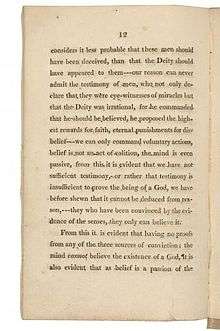 12
considers it less probable that these men should
have been deceived, than that the Deity should
have appeared to them—our reason can never
admit the testimony of men, who not only de-
clare that they were eye-witnesses of miracles but
that the Deity was irrational, for he commanded
that he should be believed, he proposed the high-
est rewards for faith, eternal punishments for dis-
belief—we can only command voluntary actions,
belief is not an act of volition, the mind is even
passive, from this it is evident that we have not
sufficient testimony, or rather that testimony is
insufficient to prove the being of a God, we have
before shewn that it cannot be deduced from rea-
son,—they who have been convinced by the evi-
dence of the senses, they only can believe it.
From this it is evident that having no proofs
from any of the three sources of conviction: the
mind cannot believe the existence of a God, it is
also evident that as belief is a passion of the